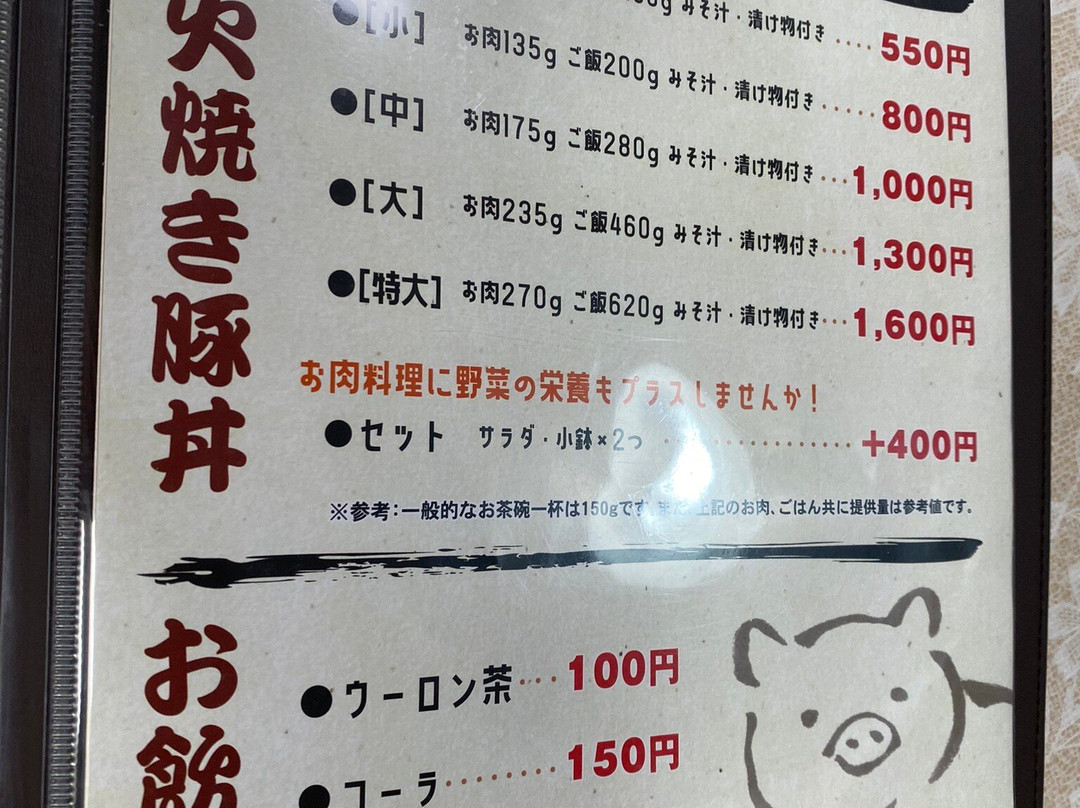 焼き豚丼
みそ汁・漬け物付き ····· 550円
●[小] お肉135g ご飯200g みそ汁・漬け物付き ····· 800円
●[中] お肉175g ご飯280g みそ汁・漬け物付き ··· 1,000円
●[大] お肉235g ご飯460g みそ汁・漬け物付き ··· 1,300円
●[特大] お肉270g ご飯620g みそ汁・漬け物付き ··· 1,600円
お肉料理に野菜の栄養もプラスしませんか！
●セット サラダ・小鉢×2つ ················ +400円
※参考：一般的なお茶碗一杯は150gです。また、上記のお肉、ごはん共に提供量は参考値です。
お飲
●ウーロン茶 ···· 100円
●コーラ ········ 150円